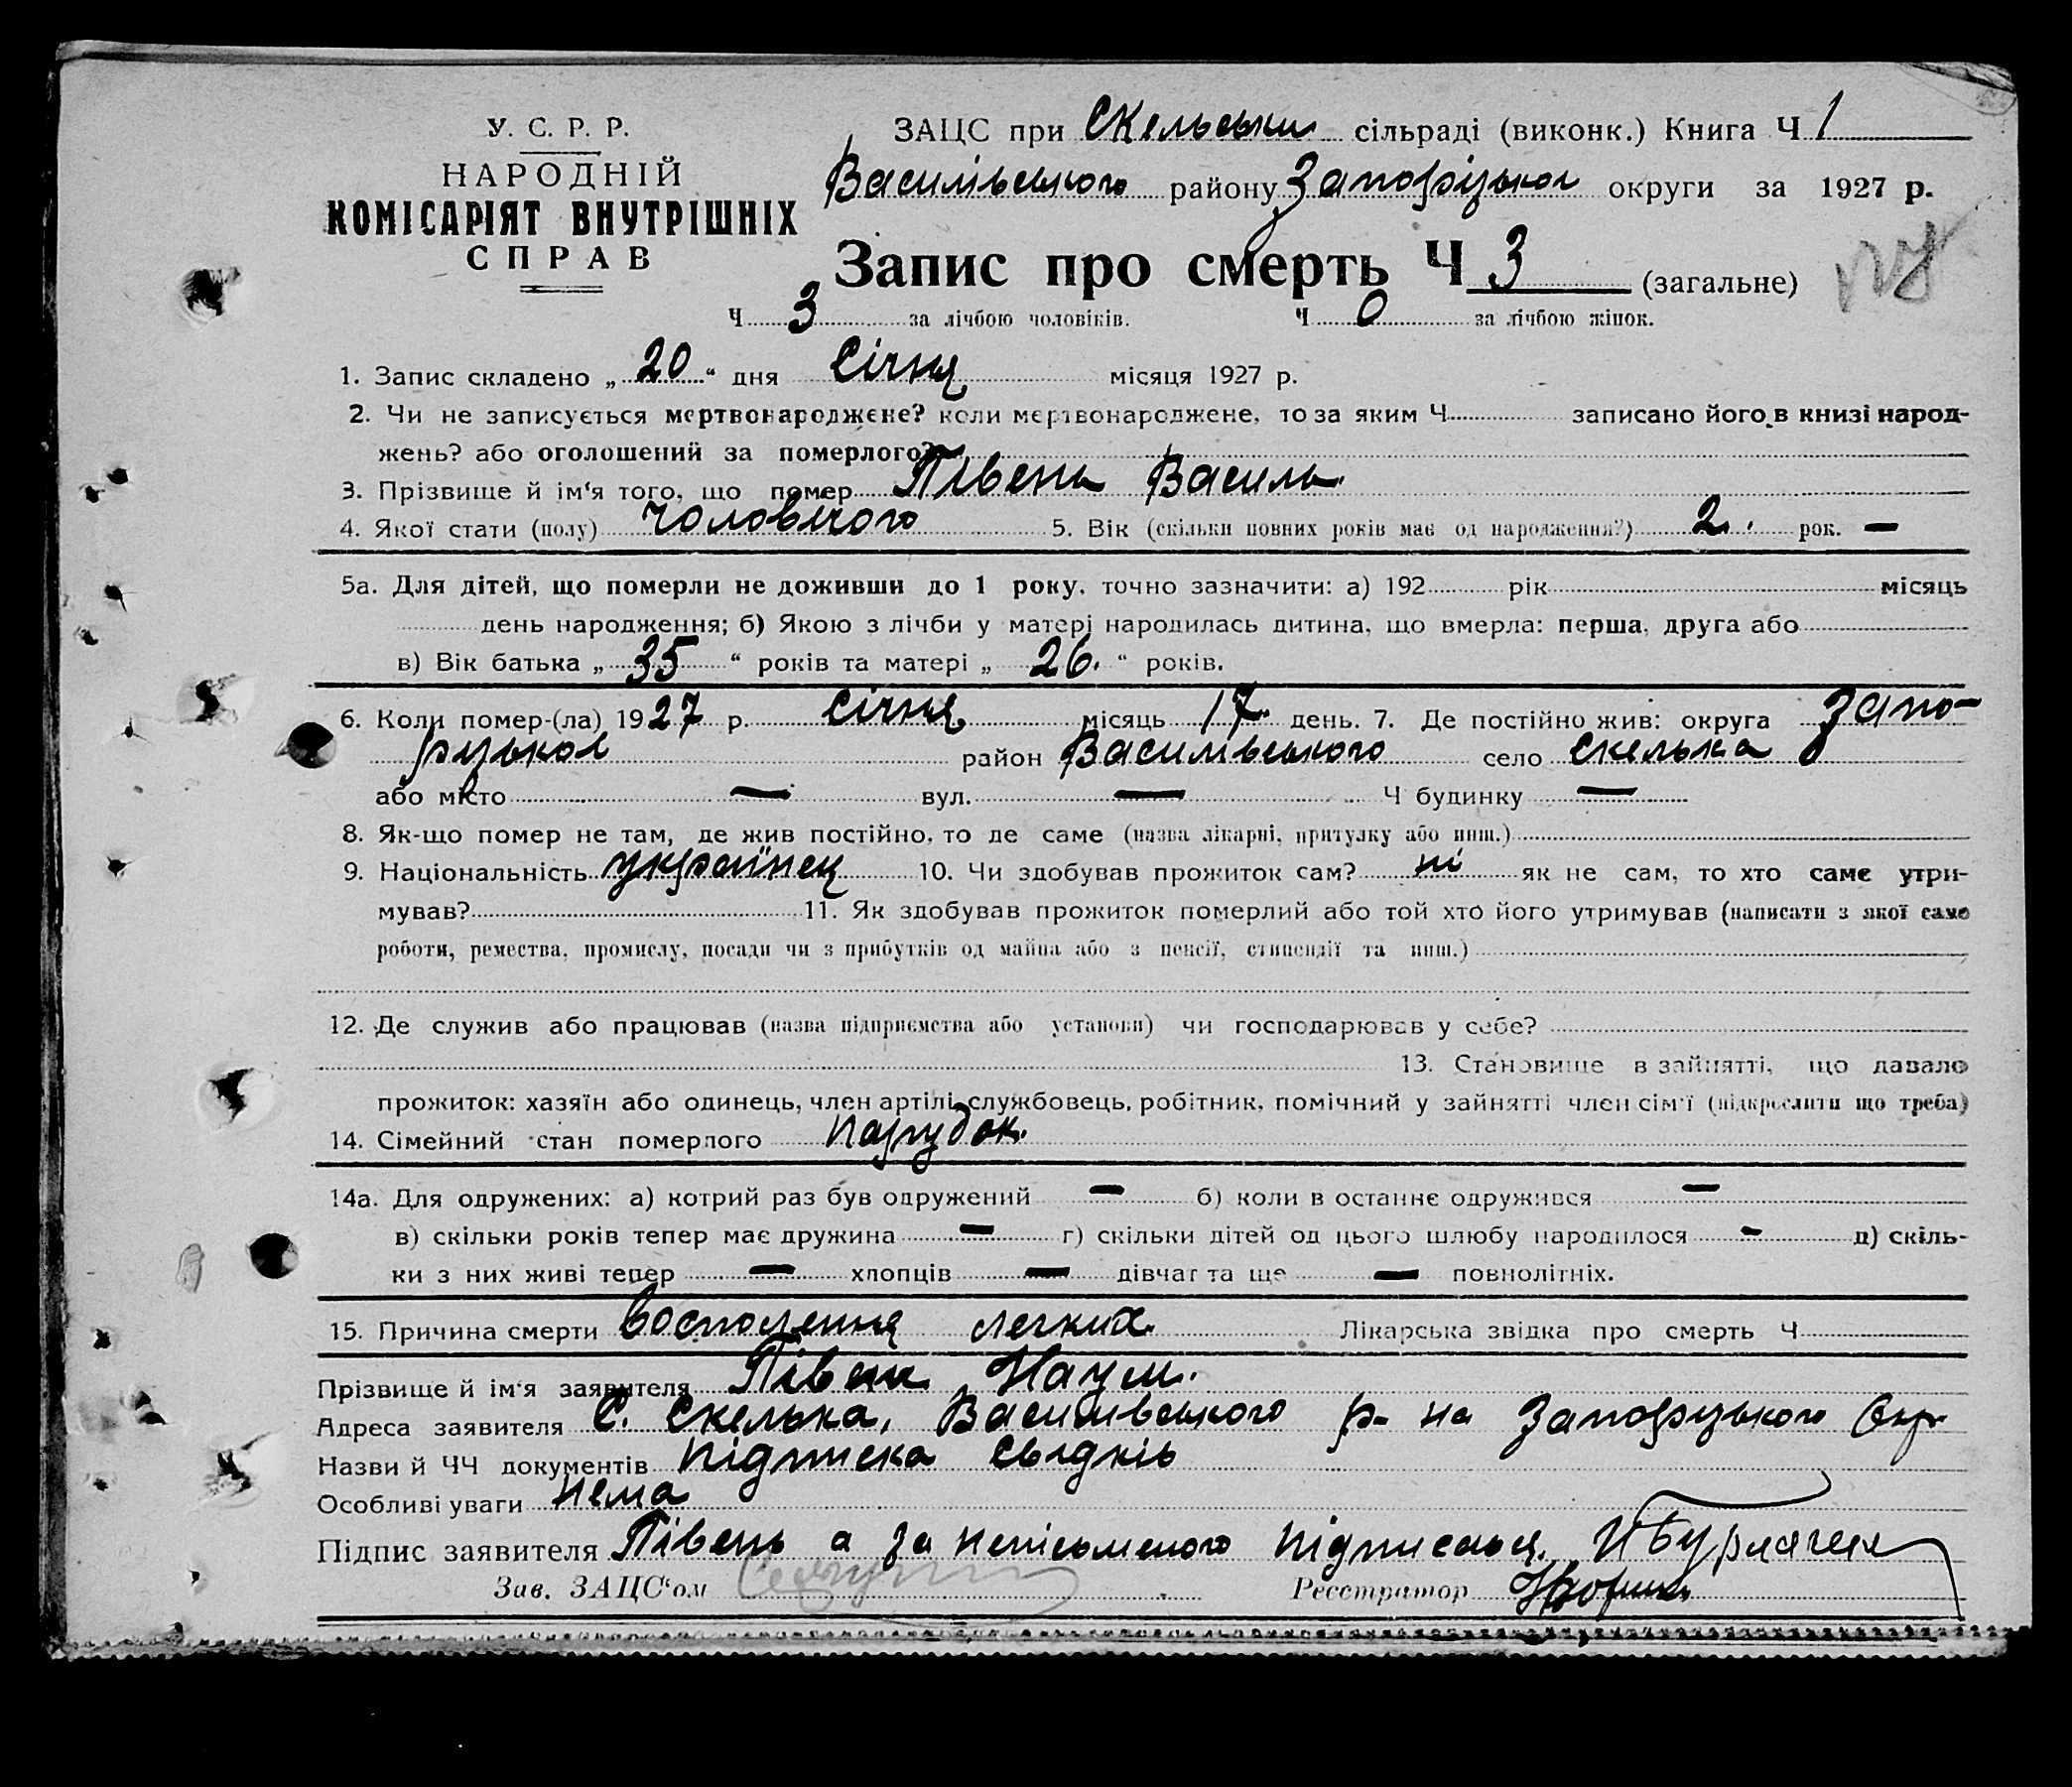 У. С. Р. Р.
НАРОДНІЙ
КОМІСАРІЯТ ВНУТРІШНІХ
СПРАВ
ЗАЦС при Скельській сільраді (виконк.) Книга Ч 1
Василівського району Запорізької округи за 1927 р.
Запис про смерть Ч 3 (загальне)
Ч 3 за лічбою чоловіків. Ч 0 за лічбою жінок.
1. Запис складено „ 20 “ дня Січня місяця 1927 р.
2. Чи не записується мертвонароджене? коли мертвонароджене, то за яким Ч записано його в книзі народ-
жень? або оголошений за померлого?
3. Прізвище й ім‘я того, що помер Півень Василь.
4. Якої стати (полу) чоловічого 5. Вік (скільки повних років має од народження?) 2. рок. —
5а. Для дітей, що померли не доживши до 1 року, точно зазначити: а) 192 рік місяць
день народження; б) Якою з лічби у матері народилась дитина, що вмерла: перша, друга або
в) Вік батька „ 35 “ років та матері „ 26. “ років.
6. Коли помер-(ла) 1927 р. Січня місяць 17. день. 7. Де постійно жив: округа Запо-
різької район Василівського село Скелька
або місто — вул. — Ч будинку —
8. Як-що помер не там, де жив постійно, то де саме (назва лікарні, притулку або инш.)
9. Національність українец 10. Чи здобував прожиток сам? ні як не сам, то хто саме утри-
мував? 11. Як здобував прожиток померлий або той хто його утримував (написати з якої саме
роботи, ремества, промислу, посади чи з прибутків од майна або з пенсії, стипендії та инш.)
12. Де служив або працював (назва підприємства або установи) чи господарював у себе?
13. Становище в зайнятті, що давало
прожиток: хазяїн або одинець, член артілі, службовець, робітник, помічний у зайнятті член сім‘ї (підкреслити що треба)
14. Сімейний стан померлого парубок.
14а. Для одружених: а) котрий раз був одружений — б) коли в останнє одружився —
в) скільки років тепер має дружина — г) скільки дітей од цього шлюбу народилося — д) скіль-
ки з них живі тепер — хлопців — дівчат та ще — повнолітніх.
15. Причина смерти воспоління легких. Лікарська звідка про смерть Ч
Прізвище й ім‘я заявителя Півень Наум.
Адреса заявителя С. Скелька, Василівського р-на Запорізького Окр.
Назви й ЧЧ документів підписка свідків
Особливі уваги нема
Підпис заявителя Півень а за неписьменого підписався.
Зав. ЗАЦС‘ом Реєстратор